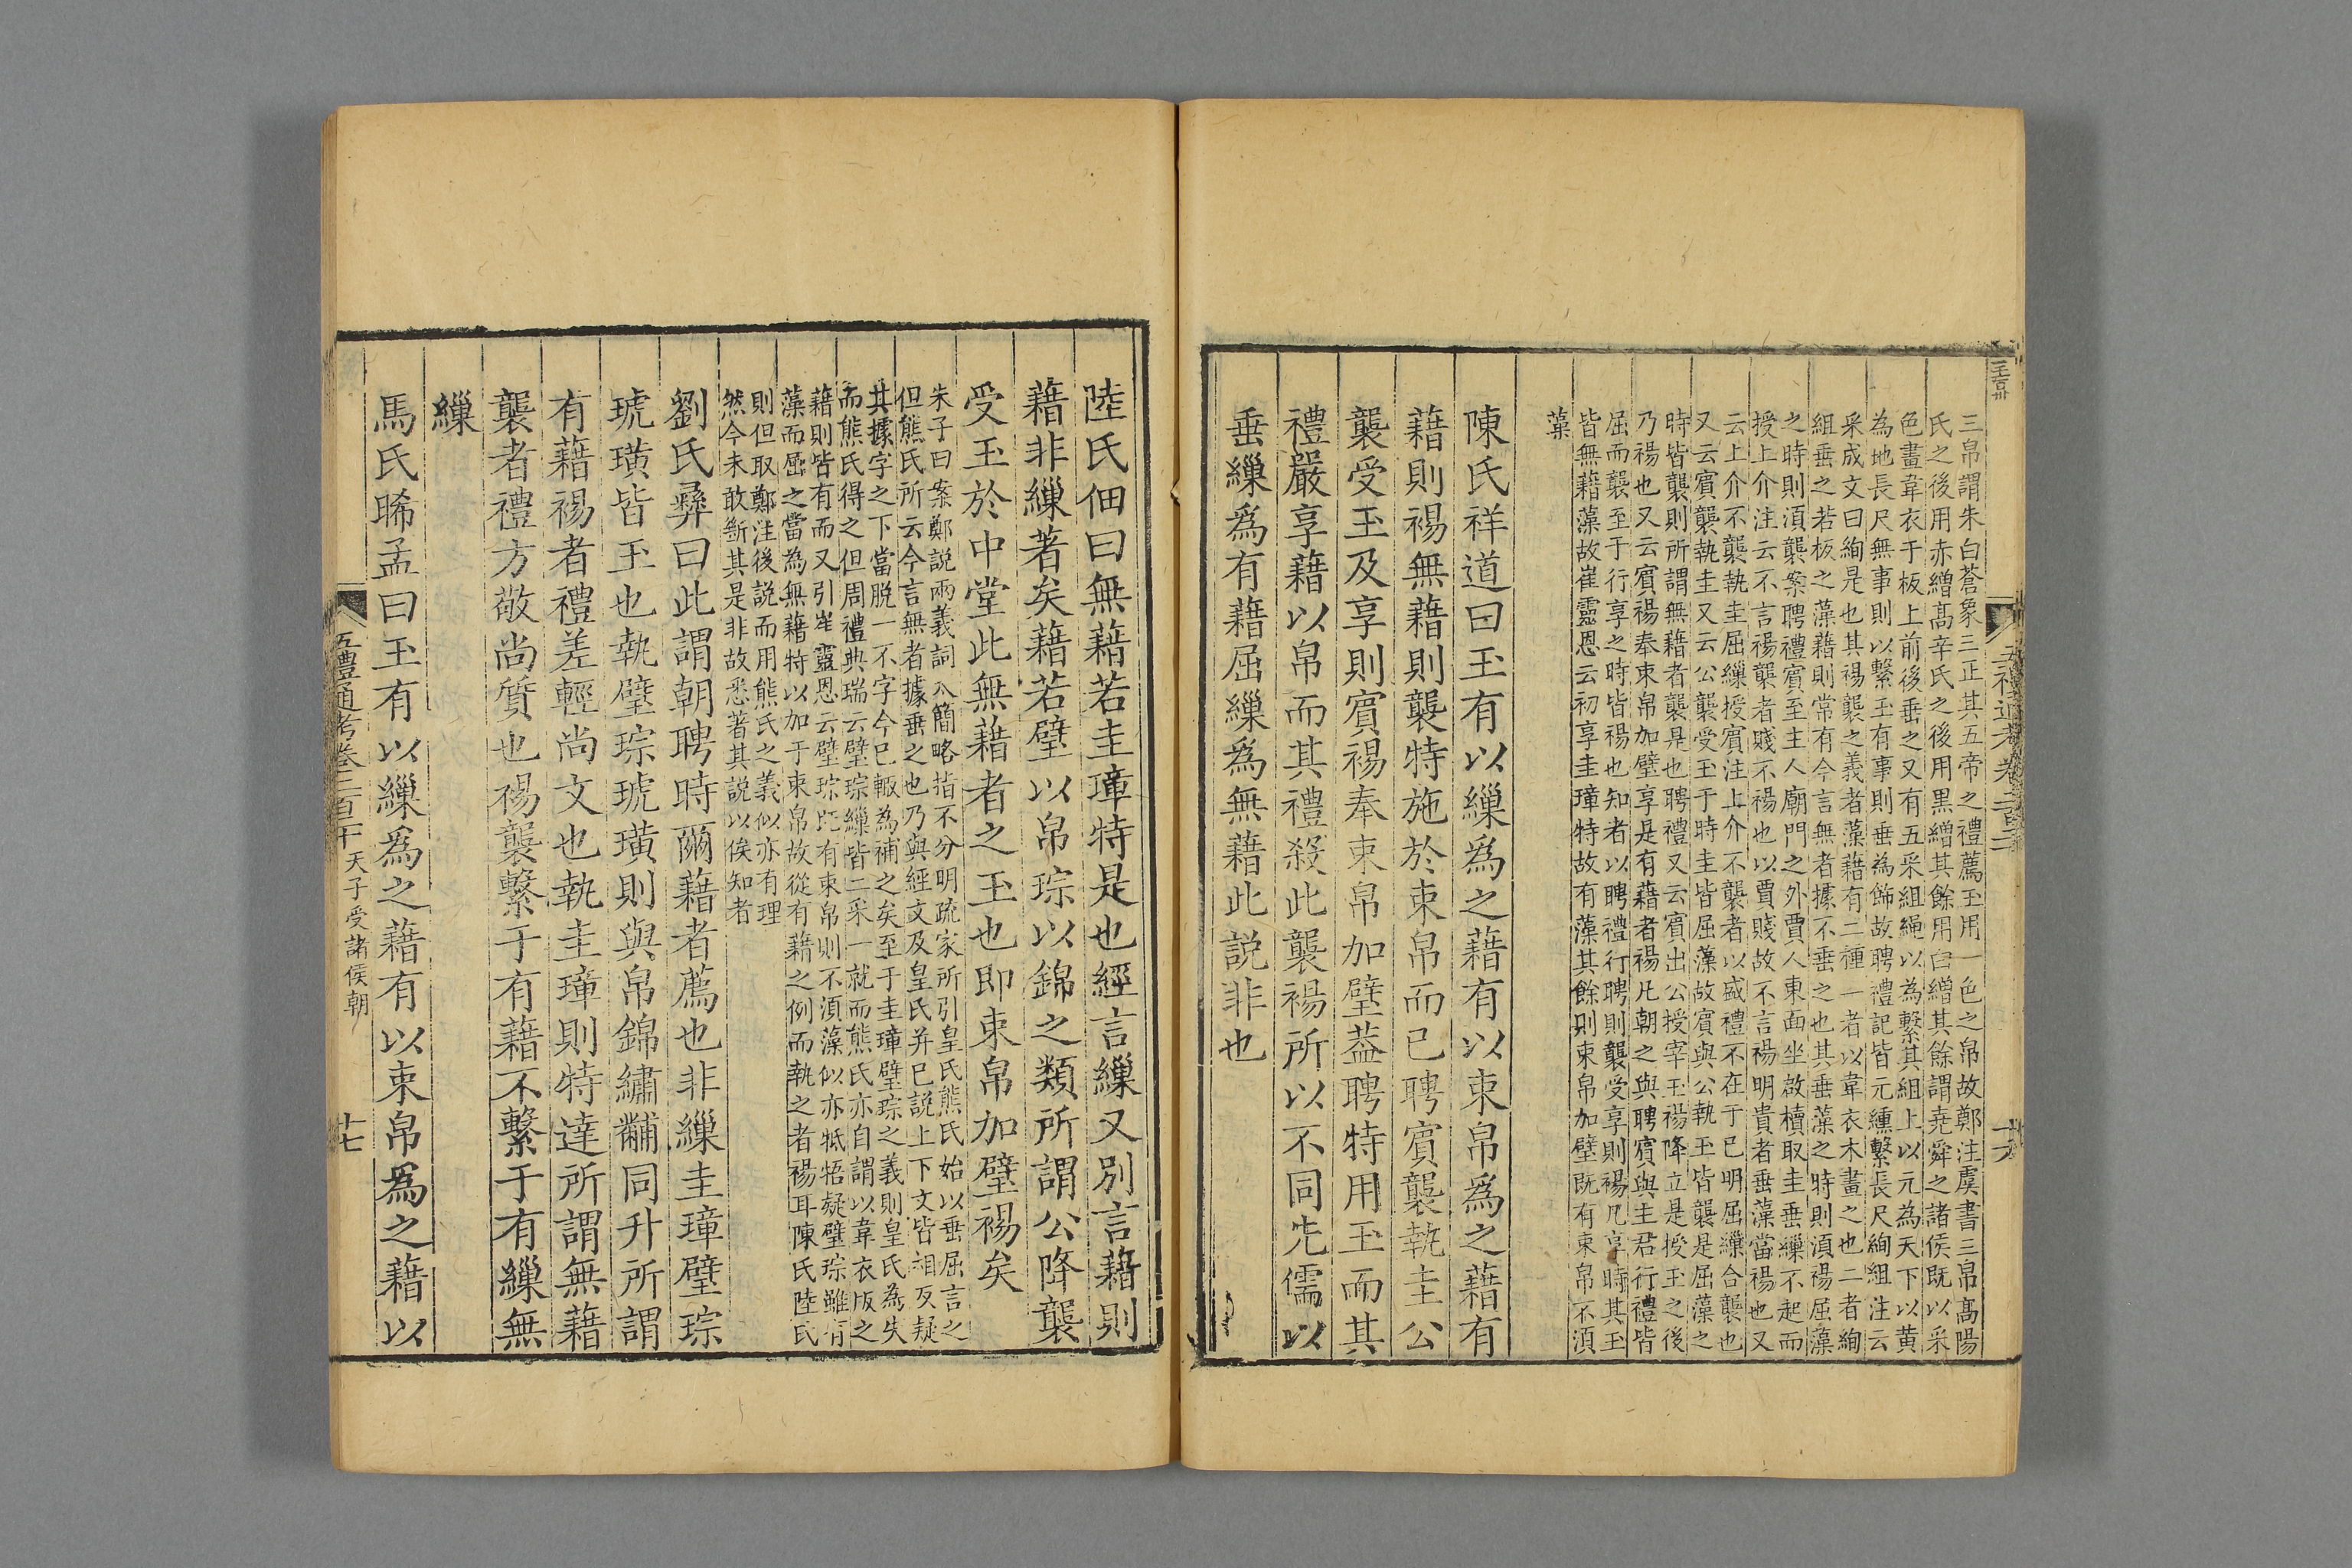 三帛謂朱白蒼象三正其五帝之禮薦玉用一色之帛故鄭注虞書三帛高陽
氏之後用赤繒高辛氏之後用黑繒其餘用白繒其餘謂堯舜之諸侯既以采
色畫韋衣于板上前後垂之又有五采組繩以為繫其組上以元為天下以黄
為地長尺無事則以繫玉有事則垂為飾故聘禮記皆元纁繫長尺絢組注云
采成文曰絢是也其裼襲之義者藻藉有二種一者以韋衣木畫之也二者絢
組垂之若板之藻藉則常有今言無者據不垂之也其垂藻之時則湏裼屈藻
之時則湏襲案聘禮賓至主人廟門之外賈人東面坐啟櫝取圭垂繅不起而
授上介注云不言裼襲者賤不裼也以賈賤故不言裼明貴者垂藻當裼也又
云上介不襲執圭屈繅授賓注上介不襲者以盛禮不在于已明屈繅合襲也
又云賓襲執圭又云公襲受玉于時圭皆屈藻故賓與公執玉皆襲是屈藻之
時皆襲則所謂無藉者襲是也聘禮又云賓出公授宰玉裼降立是授玉之後
乃裼也又云賓裼奉束帛加璧享是有藉者裼凡朝之與聘賓與主君行禮皆
屈而襲至于行享之時皆裼也知者以聘禮行聘則襲受享則裼凡享時其玉
皆無藉藻故崔靈恩云初享圭璋特故有藻其餘則束帛加璧既有束帛不湏
藻
陳氏祥道曰玉有以繅為之藉有以束帛為之藉有
藉則裼無藉則襲特施於束帛而已聘賓襲執圭公
襲受玉及享則賓裼奉束帛加璧葢聘特用玉而其
禮嚴享藉以帛而其禮殺此襲裼所以不同先儒以
垂繅為有藉屈繅為無藉此説非也
陸氏佃曰無藉若圭璋特是也經言繅又別言藉則
藉非繅著矣藉若璧以帛琮以錦之類所謂公降襲
受玉於中堂此無藉者之玉也即束帛加璧裼矣
朱子曰案鄭説兩義詞太簡略指不分明疏家所引皇氏熊氏始以垂屈言之
但熊氏所云今言無者據垂之也乃與經文及皇氏并已説上下文皆相反疑
其據字之下當脱一不字今已輙為補之矣至于圭璋璧琮之義則皇氏為失
而熊氏得之但周禮典瑞云璧琮繅皆二采一就而熊氏亦自謂以韋衣版之
藉則皆有而又引崔靈恩云璧琮既有束帛則不湏藻似亦牴牾疑璧琮雖有
藻而屈之當為無藉特以加于束帛故從有藉之例而執之者裼耳陳氏陸氏
則但取鄭注後説而用熊氏之義似亦有理
然今未敢斷其是非故悉著其説以俟知者
劉氏彝曰此謂朝聘時爾藉者薦也非繅圭璋璧琮
琥璜皆玉也執璧琮琥璜則與帛錦繡黼同升所謂
有藉裼者禮差輕尚文也執圭璋則特達所謂無藉
襲者禮方敬尚質也裼襲繫于有藉不繫于有繅無
繅
馬氏晞孟曰玉有以繅為之藉有以束帛為之藉以
五禮通考卷二百二十 天子受諸侯朝 十七